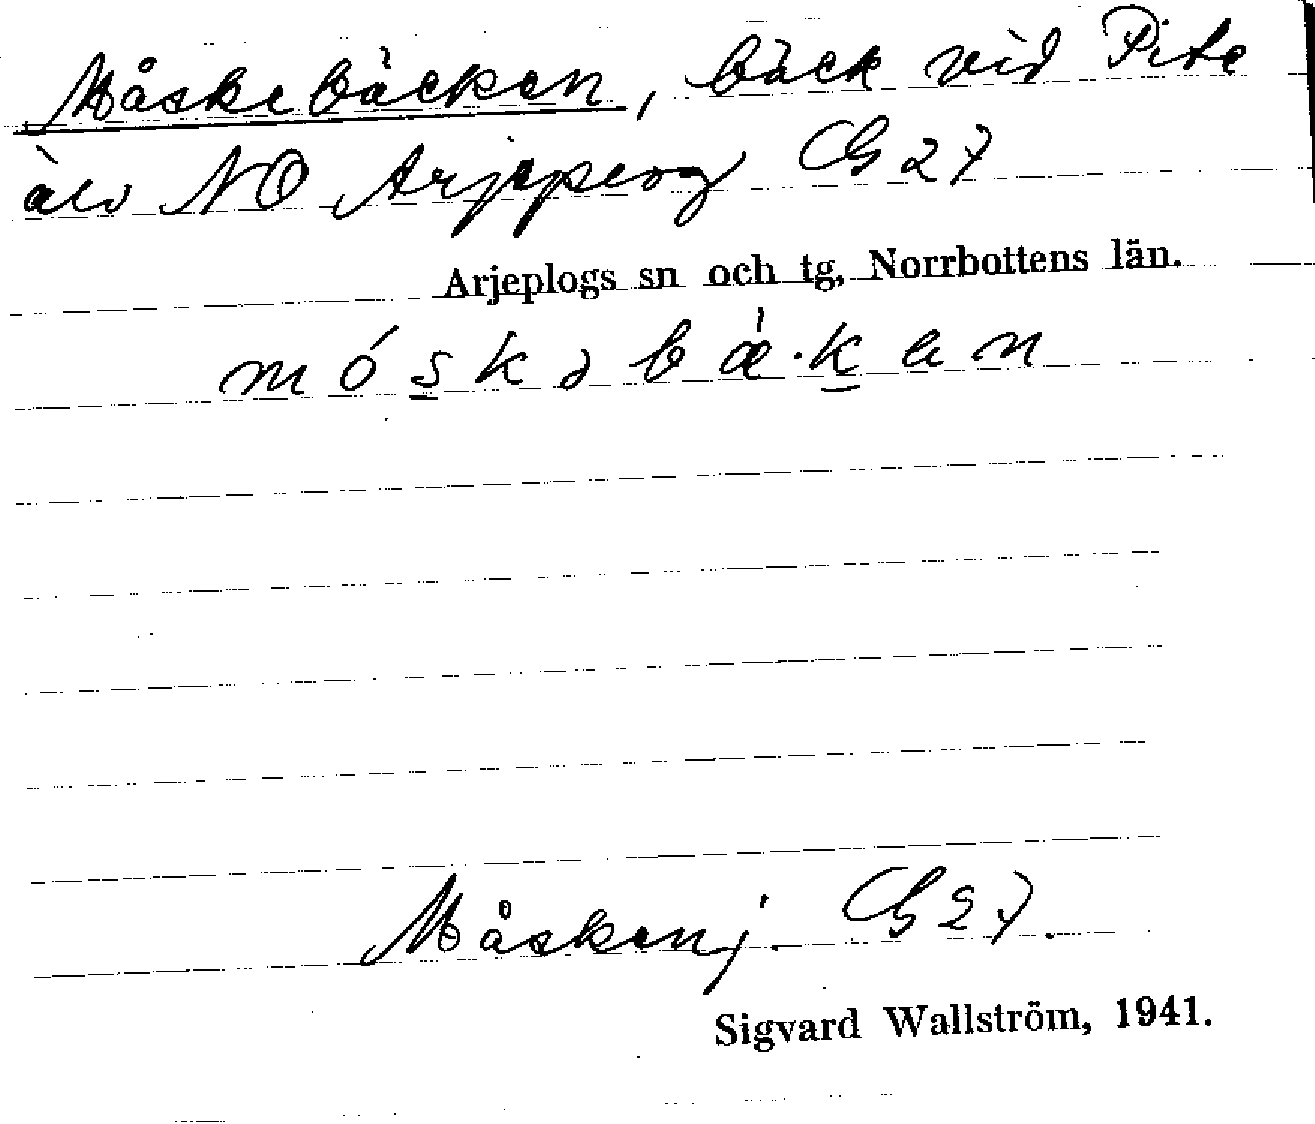 Måskebäcken, bäck vid Pite
älv NO Arjeplog G 27
Arjeplogs sn och tg, Norrbottens län.
móskəbæ̀·ken
Måskenj. G 27.
Sigvard Wallström, 1941.